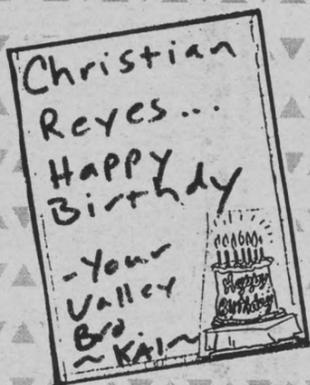 Christian
Reyes...
Happy
Birthdy
-Your
Valley
Bro.
~KAI~
Happy
Birthday